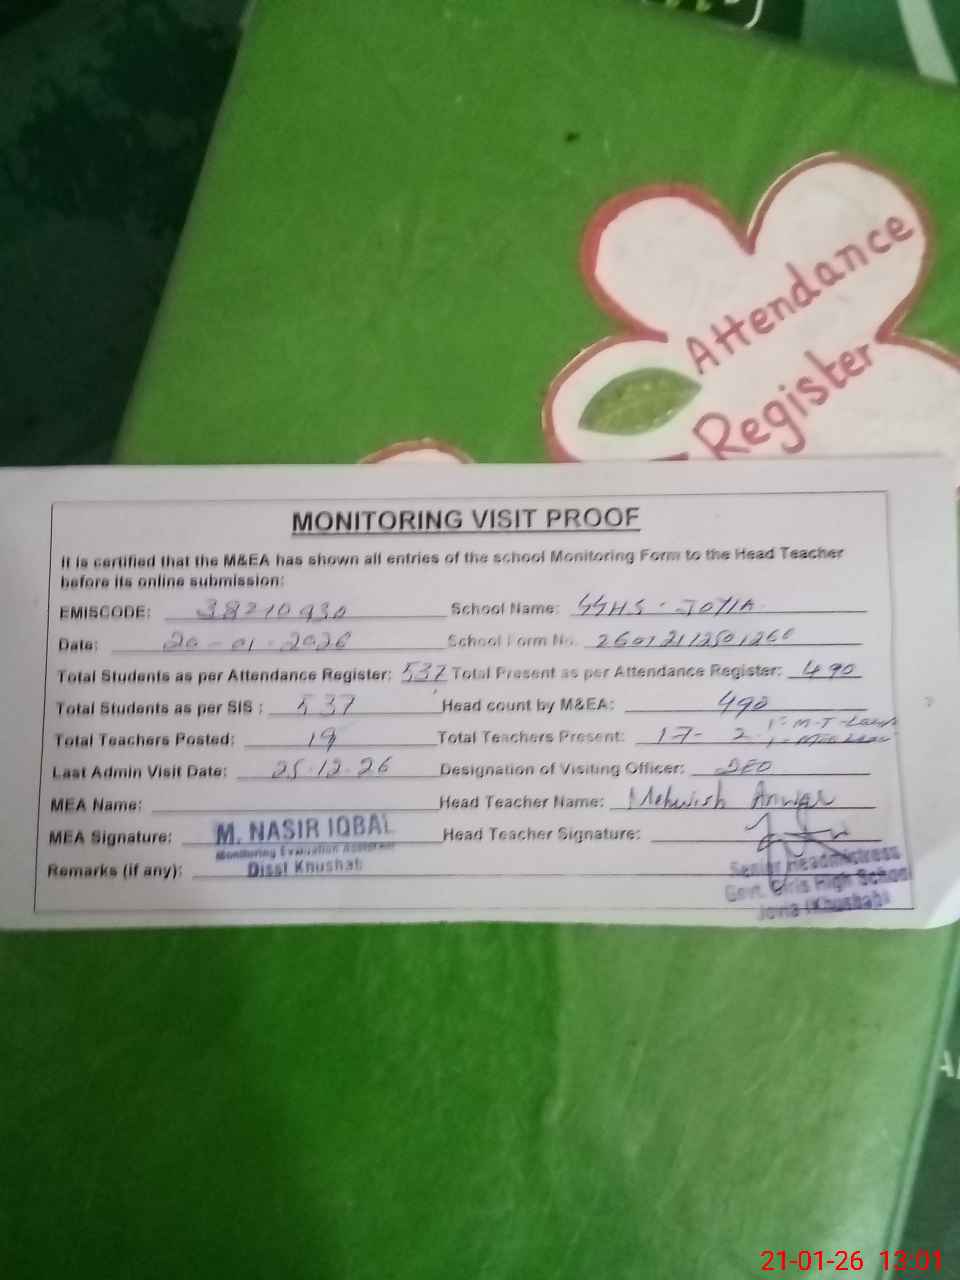 Attendance
Register
MONITORING VISIT PROOF
It is certified that the M&EA has shown all entries of the school Monitoring Form to the Head Teacher
before its online submission:
EMISCODE: 38210930 School Name: GGHS - JOYIA
Date: 20-01-2026 School Form No. 2601211250126
Total Students as per Attendance Register: 537 Total Present as per Attendance Register: 490
Total Students as per SIS : 537 Head count by M&EA: 490
Total Teachers Posted: 19 Total Teachers Present: 17- 2
Last Admin Visit Date: 25.12.26 Designation of Visiting Officer: DEO
MEA Name: Head Teacher Name: Mehwish Anwar
MEA Signature: M. NASIR IQBAL Head Teacher Signature:
Monitoring Evaluation Assistant
Remarks (if any): Disst Khushab
Senior Headmistress
Govt. Girls High School
Joyia (Khushab)
21-01-26 13:01